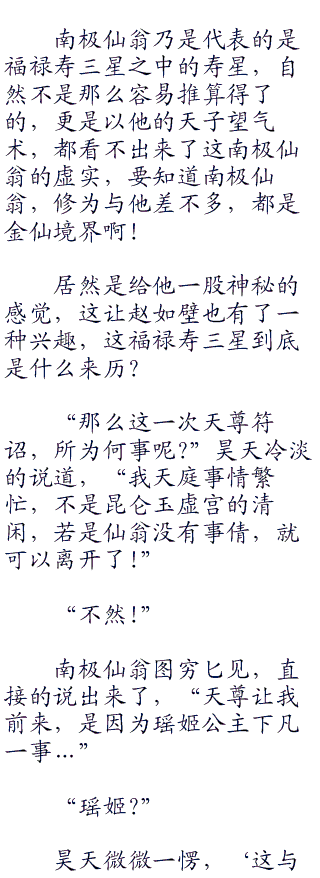 南极仙翁乃是代表的是
福禄寿三星之中的寿星，自
然不是那么容易推算得了
的，更是以他的天子望气
术，都看不出来了这南极仙
翁的虚实，要知道南极仙
翁，修为与他差不多，都是
金仙境界啊！
居然是给他一股神秘的
感觉，这让赵如壁也有了一
种兴趣，这福禄寿三星到底
是什么来历？
“那么这一次天尊符
诏，所为何事呢？”昊天冷淡
的说道，“我天庭事情繁
忙，不是昆仑玉虚宫的清
闲，若是仙翁没有事倩，就
可以离开了！”
“不然！”
南极仙翁图穷匕见，直
接的说出来了，“天尊让我
前来，是因为瑶姬公主下凡
一事…”
“瑶姬？”
昊天微微一愣，‘这与